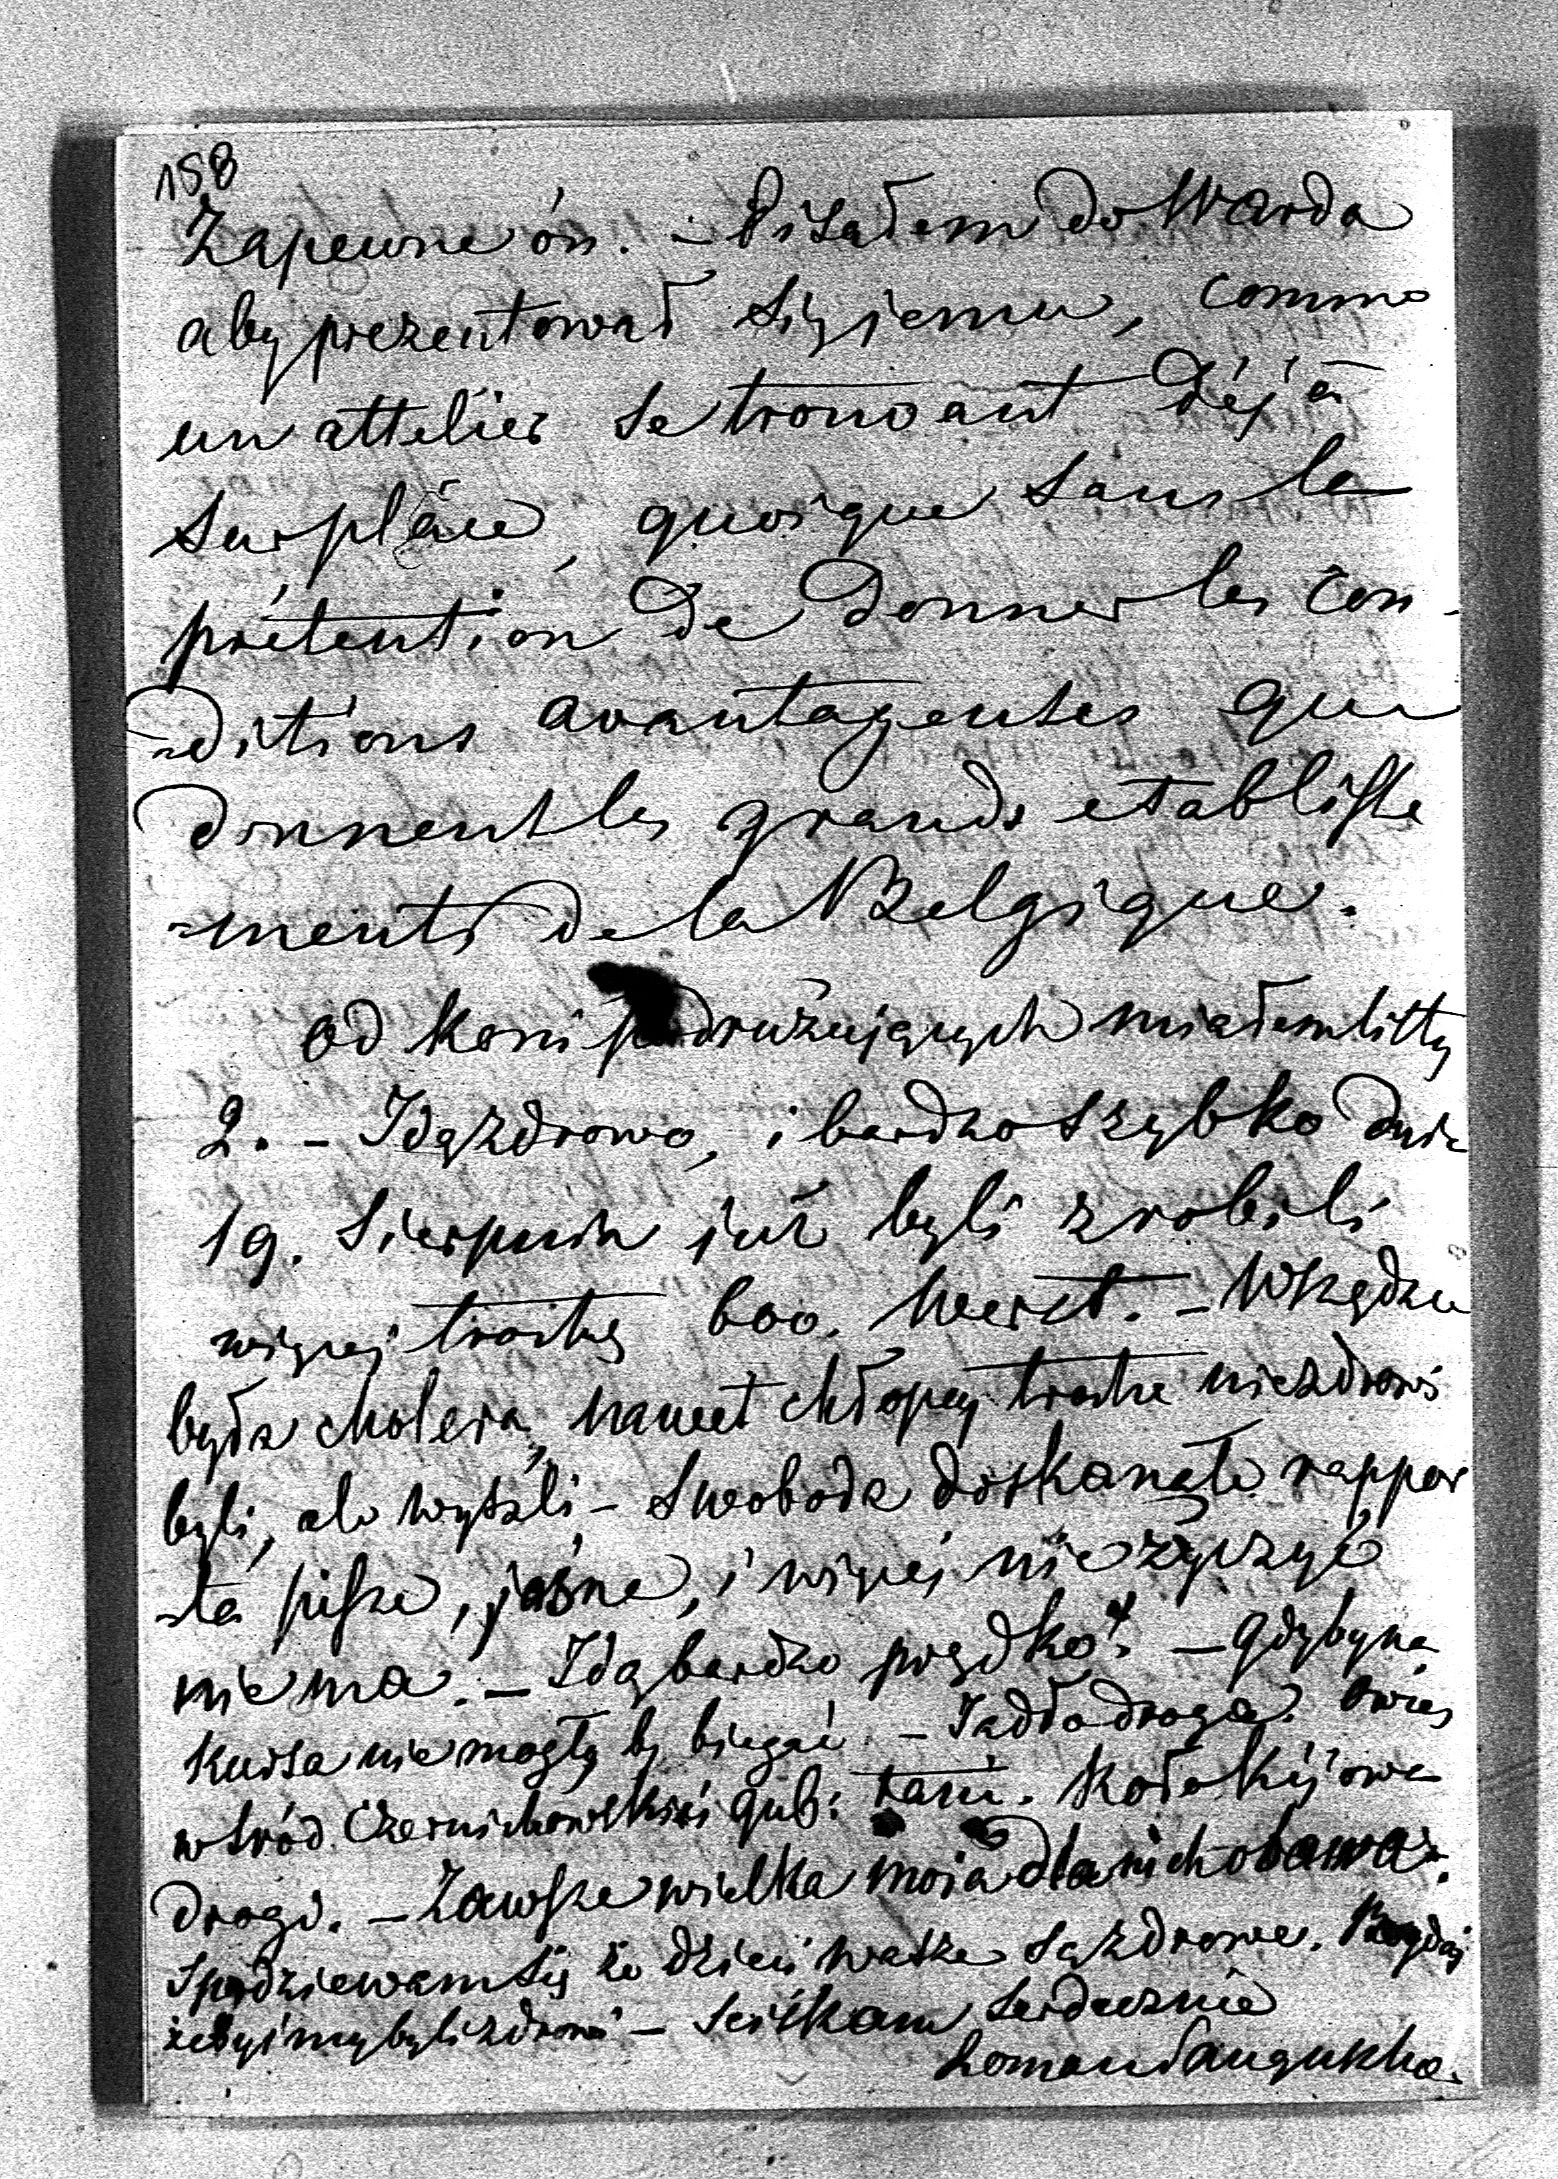 158
Zapewne ón. – Pisałem do Warda
aby prezentował się jemu, comme
un attelier se trouvant déjà
sur place, quoique sans la
prétention de donner les con-
-ditions avantageuses que
donnent les grands etablisse
-ments de la Belgique.
od koni podróżujących miałem listy
2. – Idą zdrowo, i bardzo szybko dnia
19. Sierpnia już byli zrobili
więcej trochę 600. Werst. – Wszędzie
była cholera, nawet chłopcy trochę niezdrowi
byli, ale wyszli – Swoboda doskonałe rappor
-ta pisze, jasne, i więcej nie życzyć
nie ma. – Idą bardzo prędko. – gdyby na
kursa nie mogły by biegać. – Jadło drogie. Owies
wśród Czernichowskiéj gub: tani. koło Kijowa
drogi. – Zawsze wielka moja dla nich obawa.
Spodziewam się że dzieci wasze są zdrowe. Bogdaj
żeby i my byli zdrowi – Sciskam serdecznie
Roman Sanguszko.